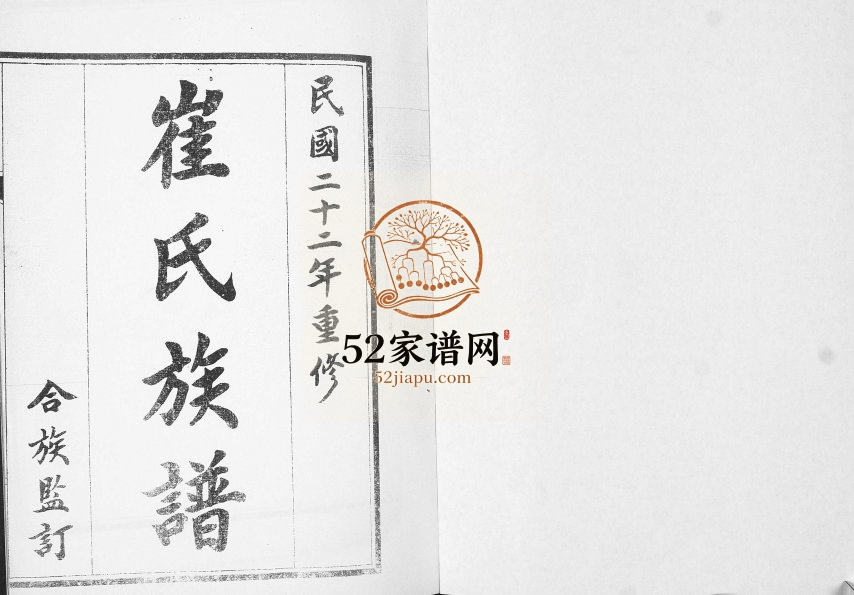 民國二十二年重修
崔氏族譜
合族監訂
52家谱网
52jiapu.com